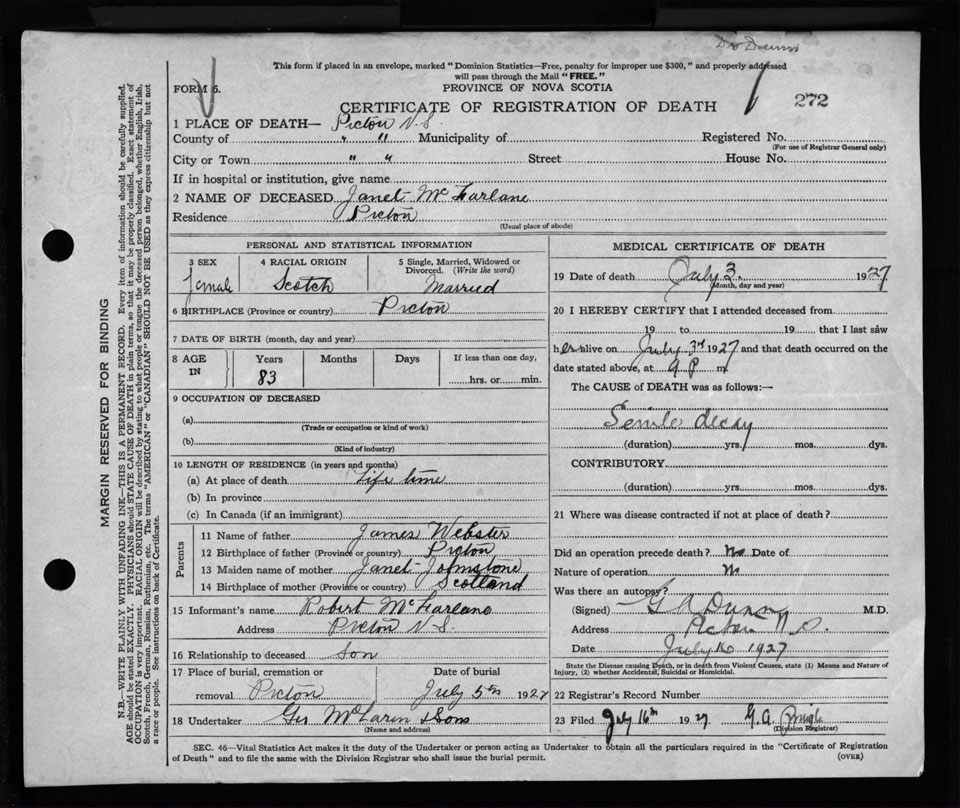 Dr Dunn
This form if placed in an envelope, marked "Dominion Statistics—Free, penalty for improper use $300," and properly addressed
will pass through the Mail "FREE."
FORM 5.
PROVINCE OF NOVA SCOTIA
CERTIFICATE OF REGISTRATION OF DEATH
272
1 PLACE OF DEATH— Pictou N.S.
County of " " Municipality of Registered No.
(For use of Registrar General only)
City or Town " " Street House No.
If in hospital or institution, give name
2 NAME OF DECEASED Janet McFarlane
Residence Pictou
(Usual place of abode)
PERSONAL AND STATISTICAL INFORMATION
3 SEX 4 RACIAL ORIGIN 5 Single, Married, Widowed or
Divorced. (Write the word)
female Scotch Married
6 BIRTHPLACE (Province or country) Pictou
7 DATE OF BIRTH (month, day and year)
8 AGE IN Years Months Days If less than one day,
83 hrs. or min.
9 OCCUPATION OF DECEASED
(a)
(Trade or occupation or kind of work)
(b)
(Kind of industry)
10 LENGTH OF RESIDENCE (in years and months)
(a) At place of death Life time
(b) In province
(c) In Canada (if an immigrant)
Parents
11 Name of father James Webster
12 Birthplace of father (Province or country) Pictou
13 Maiden name of mother Janet Johnstone
14 Birthplace of mother (Province or country) Scotland
15 Informant's name Robert McFarlane
Address Pictou N.S.
16 Relationship to deceased Son
17 Place of burial, cremation or Date of burial
removal Pictou July 5th 1927
18 Undertaker Geo McLaren & Sons
(Name and address)
MEDICAL CERTIFICATE OF DEATH
19 Date of death July 3. 1927
(Month, day and year)
20 I HEREBY CERTIFY that I attended deceased from
19 to 19 that I last saw
her alive on July 3rd 1927 and that death occurred on the
date stated above, at 9 P m
The CAUSE of DEATH was as follows:—
Senile decay
(duration) yrs. mos. dys.
CONTRIBUTORY
(duration) yrs. mos. dys.
21 Where was disease contracted if not at place of death?
Did an operation precede death? No Date of
Nature of operation
Was there an autopsy?
(Signed) G A Dunn M.D.
Address Pictou N.S.
Date July 1927
State the Disease causing Death, or in death from Violent Causes, state (1) Means and Nature of
Injury, (2) whether Accidental, Suicidal or Homicidal.
22 Registrar's Record Number
23 Filed July 16th 1927 G. A.
(Division Registrar)
SEC. 46—Vital Statistics Act makes it the duty of the Undertaker or person acting as Undertaker to obtain all the particulars required in the "Certificate of Registration
of Death" and to file the same with the Division Registrar who shall issue the burial permit.
(OVER)
MARGIN RESERVED FOR BINDING
N.B.—WRITE PLAINLY WITH UNFADING INK—THIS IS A PERMANENT RECORD. Every item of information should be carefully supplied.
AGE should be stated EXACTLY. PHYSICIANS should STATE CAUSE OF DEATH in plain terms, so that it may be properly classified. Exact statement of
OCCUPATION is very important. RACIAL ORIGIN will be described by stating to what people or tongue the deceased person belonged, whether English, Irish,
Scotch, French, German, Russian, Ruthenian, etc. The terms "AMERICAN" or "CANADIAN" SHOULD NOT BE USED as they express citizenship but not
a race or people. See instructions on back of Certificate.